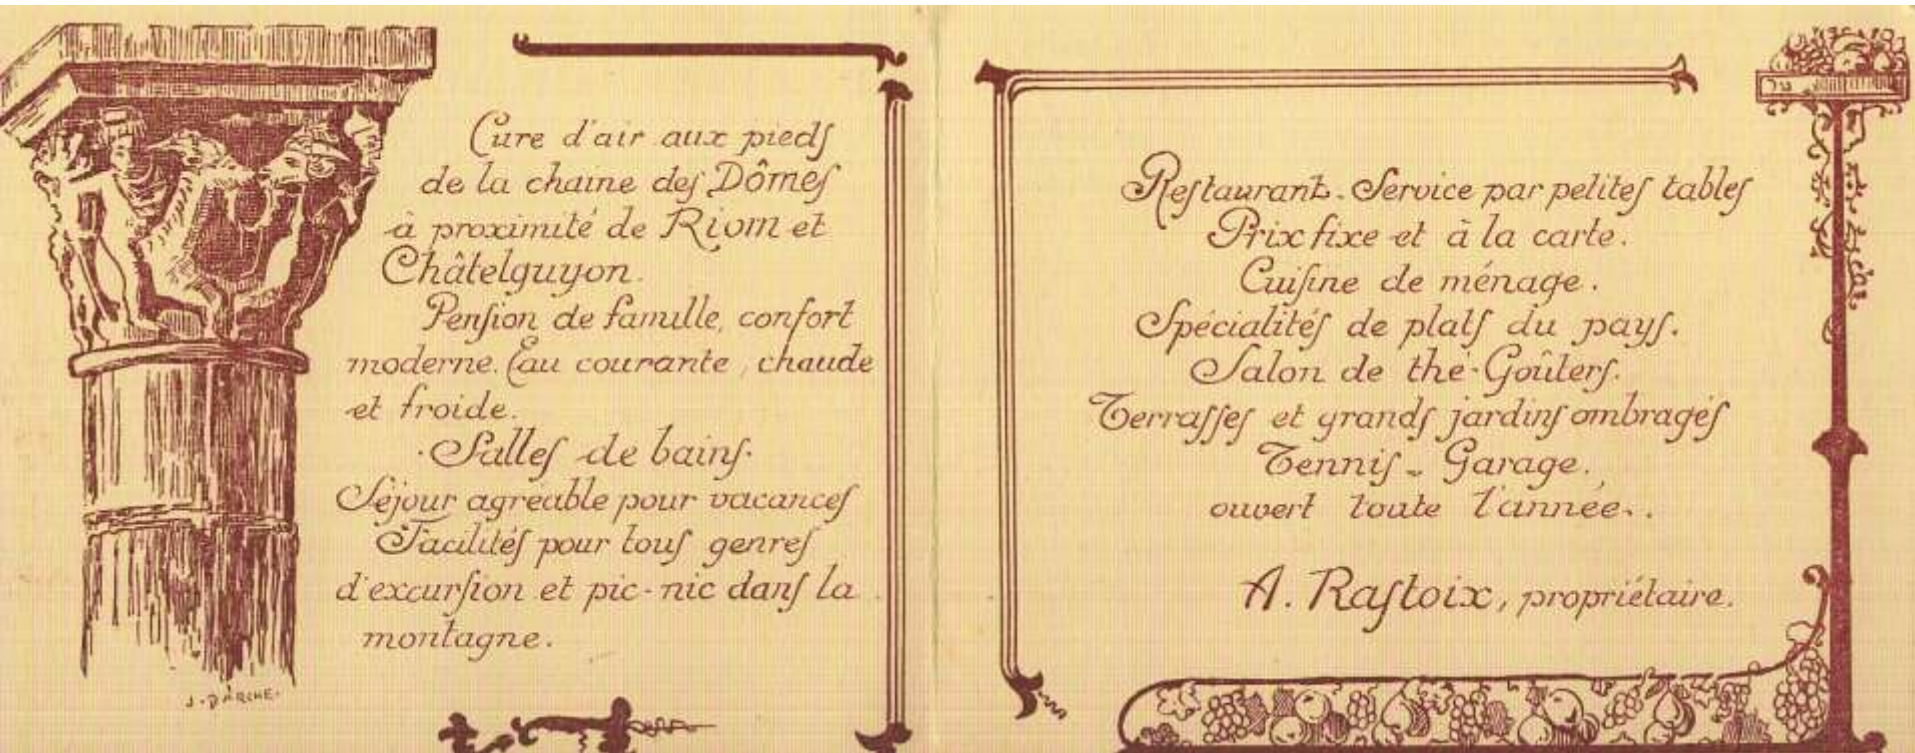 Cure d'air aux pieds
de la chaine des Dômes
à proximité de Riom et
Châtelguyon.
Pension de famille, confort
moderne. Eau courante, chaude
et froide.
·Salles de bains·
Séjour agréable pour vacances
Facilités pour tous genres
d'excursion et pic-nic dans la
montagne.
J. DARCHE.
Restaurant. Service par petites tables
Prix fixe et à la carte.
Cuisine de ménage.
Spécialités de plats du pays.
Salon de thé-Goûters.
Terrasses et grands jardins ombragés
Tennis - Garage.
ouvert toute l'année..
A. Rastoix, propriétaire.